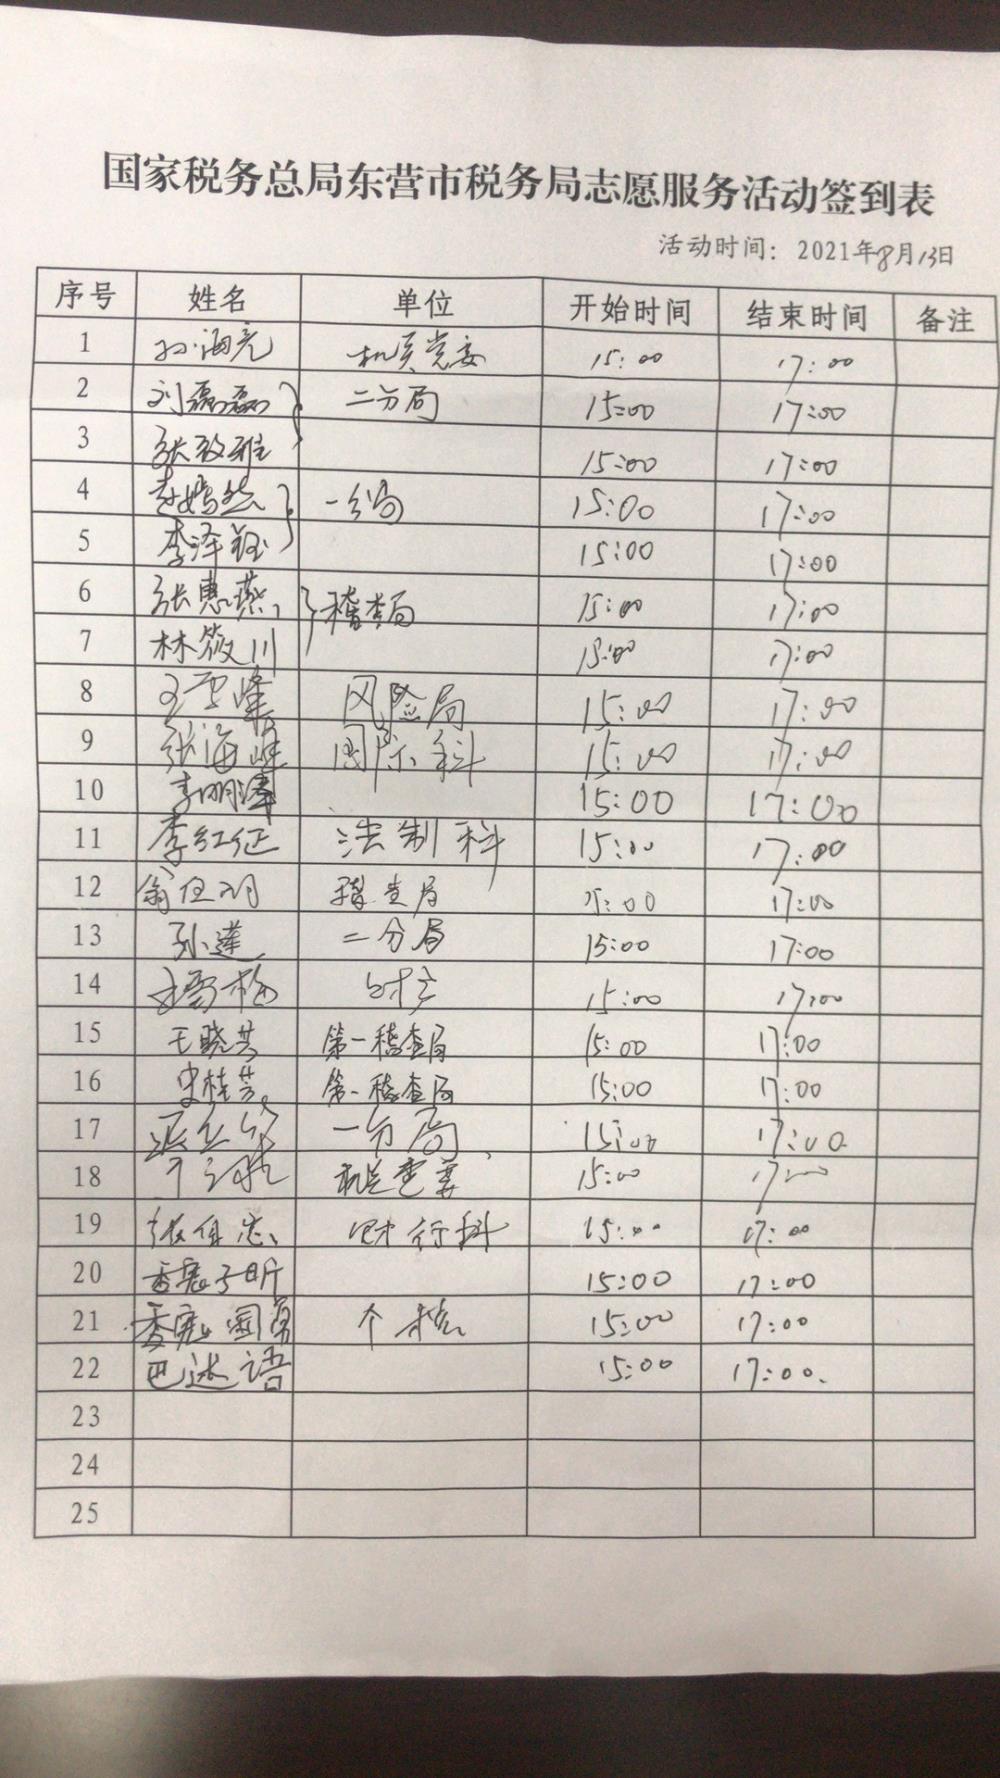 国家税务总局东营市税务局志愿服务活动签到表
活动时间：2021年8月13日
序号 姓名 单位 开始时间 结束时间 备注
1 孙海亮 机关党委 15:00 17:00
2 刘磊磊 二分局 15:00 17:00
3 张 雅 15:00 17:00
4 李嫣然 一分局 15:00 17:00
5 李泽钰 15:00 17:00
6 张惠燕 稽查局 15:00 17:00
7 林筱川 15:00 17:00
8 王雪峰 风险局 15:00 17:00
9 张海峰 国际科 15:00 17:00
10 李明泽 15:00 17:00
11 李红征 法制科 15:00 17:00
12 稽查局 15:00 17:00
13 孙莲 二分局 15:00 17:00
14 15:00 17:00
15 王晓芳 第一稽查局 15:00 17:00
16 史桂芳 第一稽查局 15:00 17:00
17 一分局 15:00 17:00
18 机关党委 15:00 17:00
19 张俊忠 财行科 15:00 17:00
20 子昕 15:00 17:00
21 15:00 17:00
22 巴述语 15:00 17:00.
23
24
25